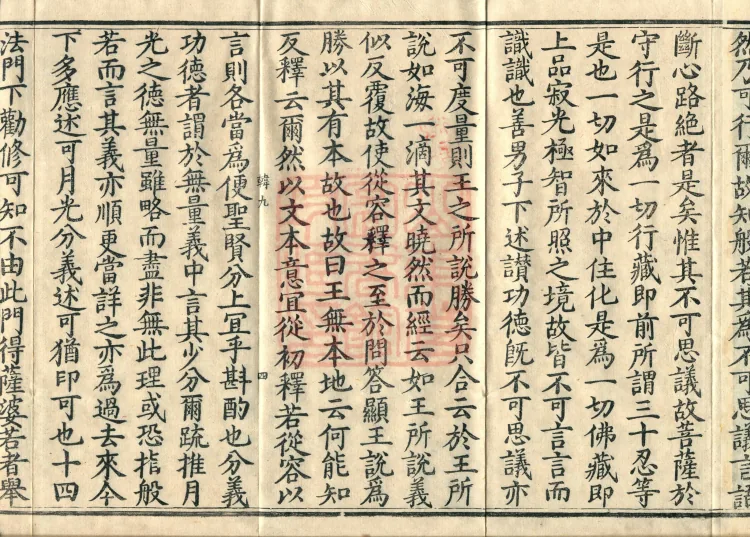 然乃可行爾故知般若其為不可思議言語
斷心路絕者是矣惟其不可思議故菩薩於
守行之是為一切行藏即前所謂三十忍等
是也一切如來於中住化是為一切佛藏即
上品寂光極智所照之境故皆不可言言而
識識也善男子下述讃功德既不可思議亦
不可度量則王之所說勝矣只合云於王所
說如海一滴其文曉然而經云如王所說義
似反覆故使從容釋之至於問答顯王說為
勝以其有本故也故曰王無本地云何能知
反釋云爾然以文本意宜從初釋若從容以
緯九
四
言則各當為便聖賢分上冝乎斟酌也分義
功德者謂於無量義中言其少分爾䟽推月
光之德無量雖略而盡非無此理或恐指般
若而言其義亦順更當詳之亦為過去來今
下多應述可月光分義述可猶印可也十四
法門下勸修可知不由此門得薩婆若者舉